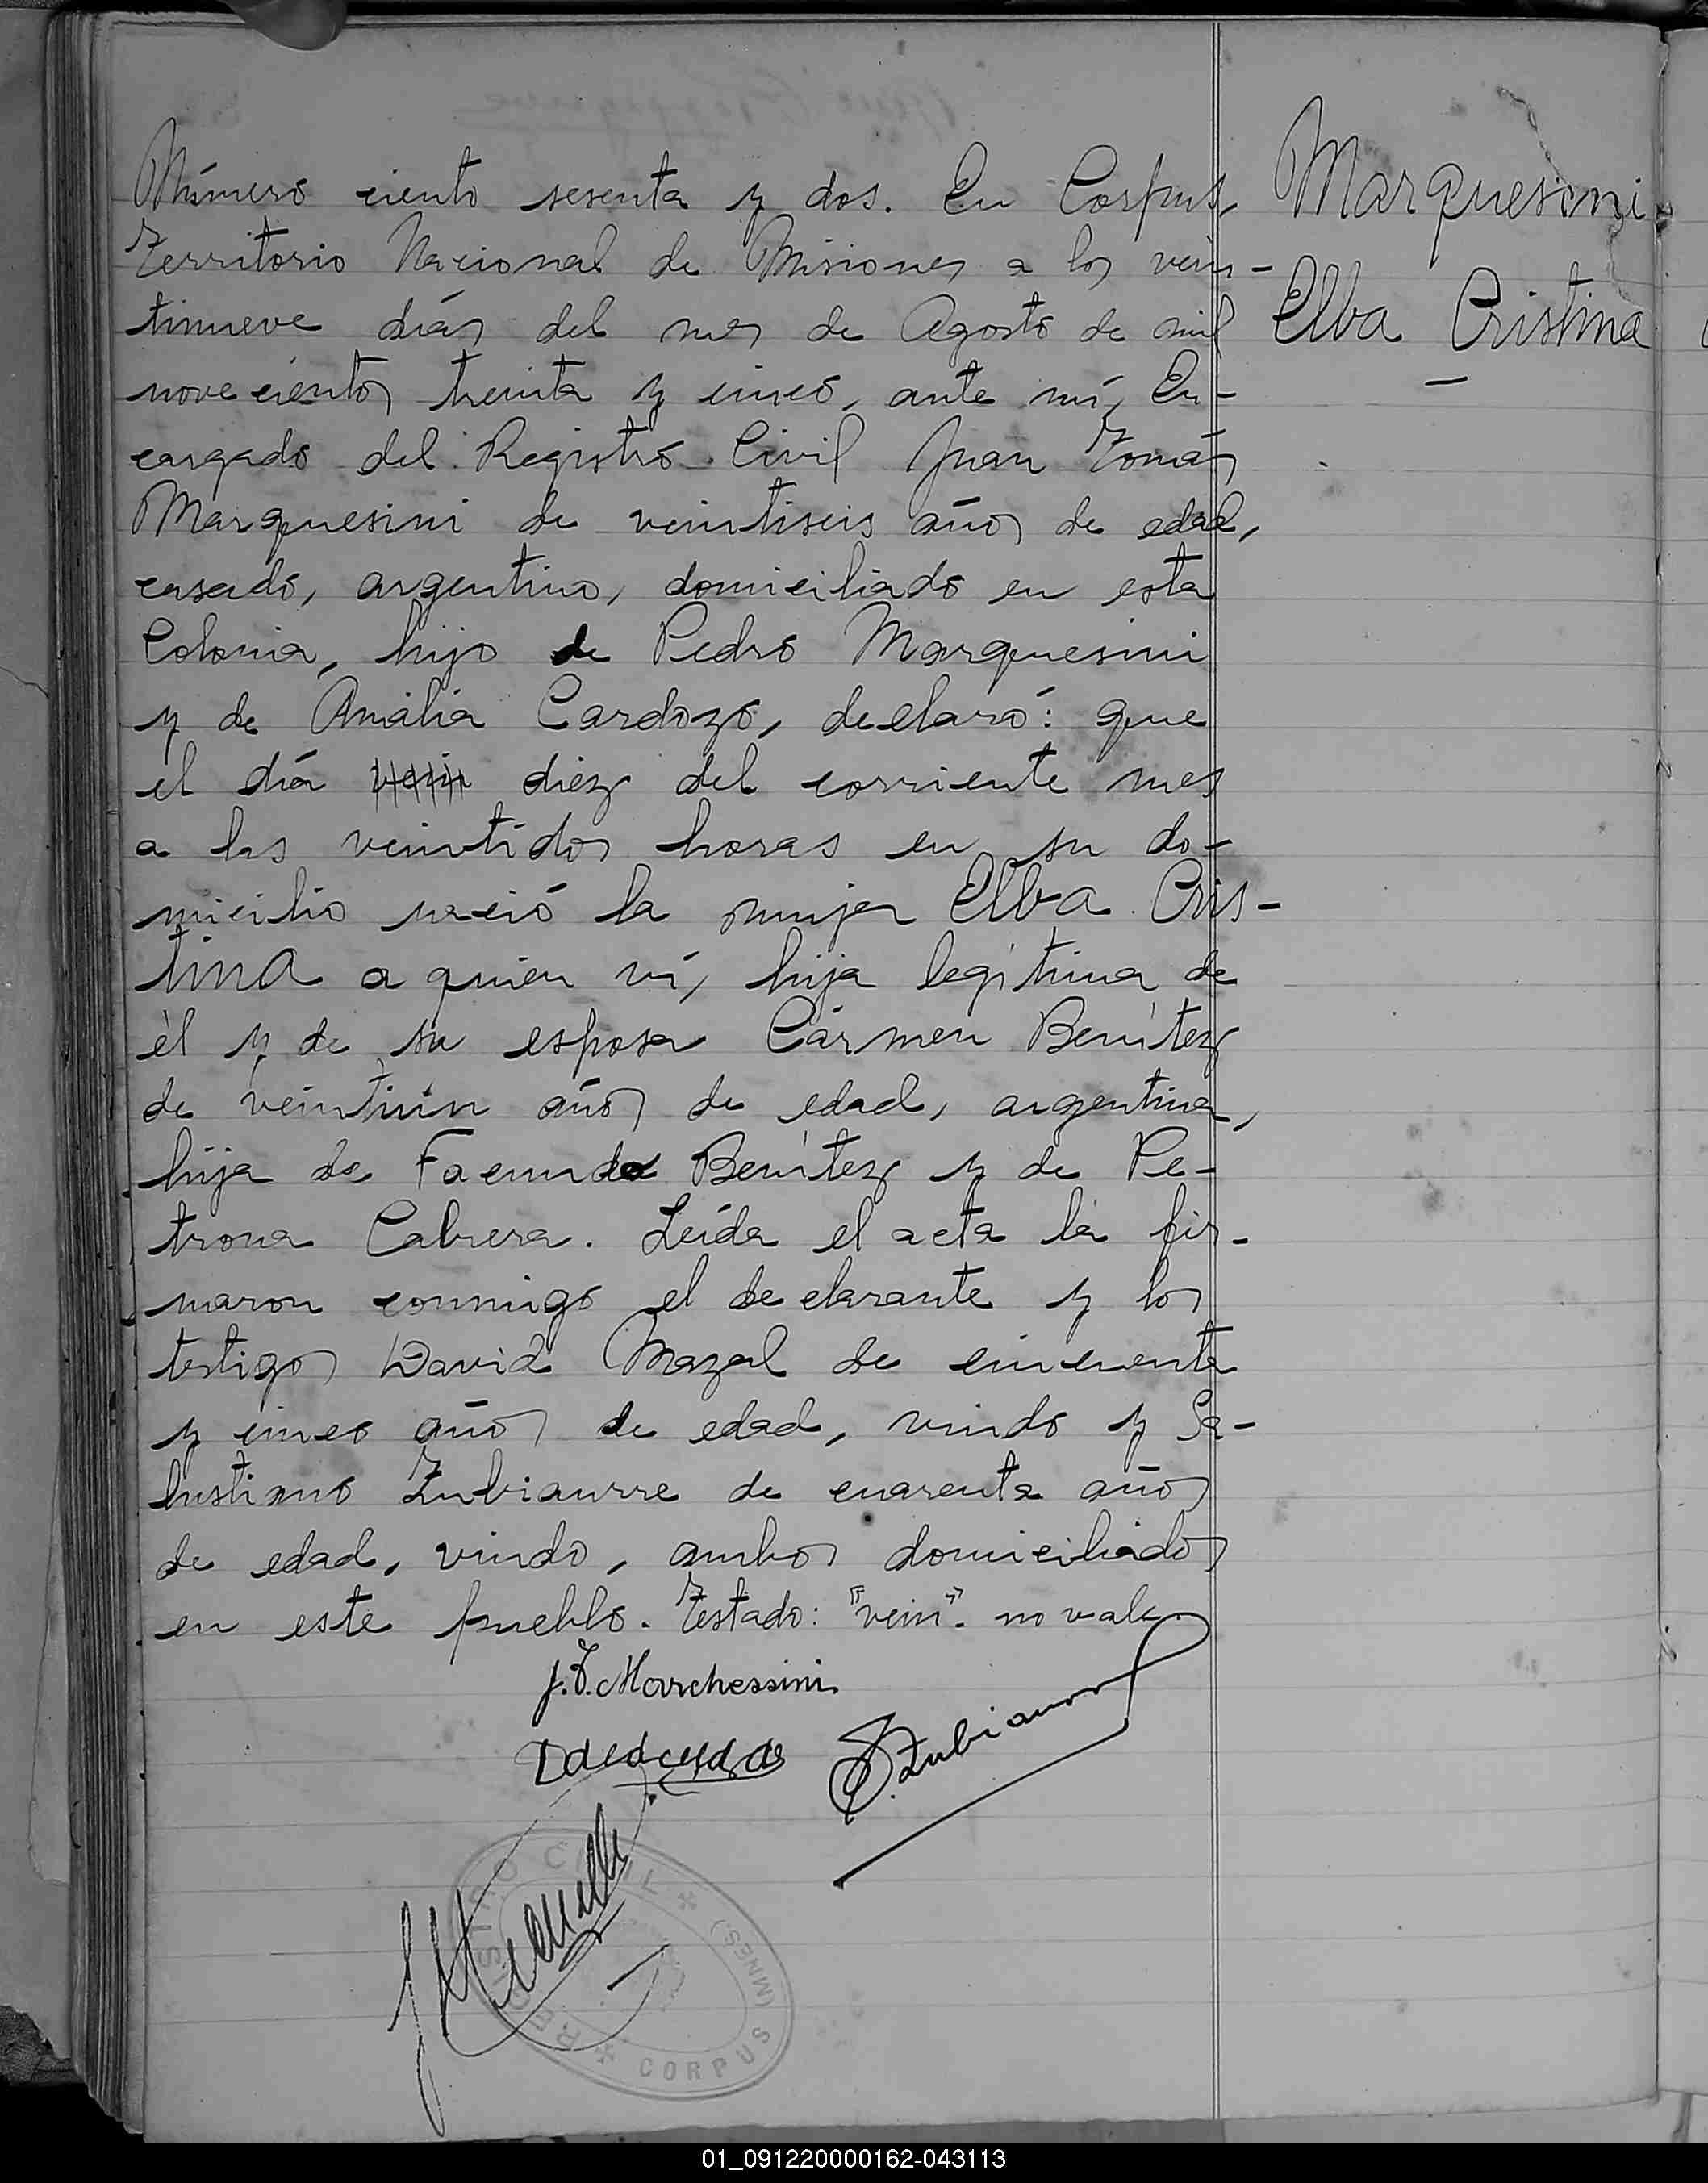 Número ciento sesenta y dos. En Corpus,
Territorio Nacional de Misiones a los vein-
tinueve días del mes de Agosto de mil
novecientos treinta y cinco, ante mí, En-
cargado del Registro Civil Juan Tomás
Marquesini de veintiseis años de edad,
casado, argentino, domiciliado en esta
Colonia, hijo de Pedro Marquesini
y de Amalia Cardozo, declaró: que
el día vein diez del corriente mes
a las veintidos horas en su do-
micilio nació la mujer Elba Cris-
tina a quien ví, hija legítima de
él y de su esposa Cármen Benítez
de veintiún años de edad, argentina,
hija de Facundo Benítez y de Pe-
trona Cabrera. Leída el acta la fir-
maron conmigo el declarante y los
testigos David Mazal de cincuenta
y cinco años de edad, viudo y Sa-
lustiano Zubiaurre de cuarenta años
de edad, viudo, ambos domiciliados
en este pueblo. Testado: "vein". no vale.
Marquesini
Elba Cristina
J. T. Marchessini
S. Zubiaurre
REGISTRO CIVIL
CORPUS (MNES)
01_091220000162-043113